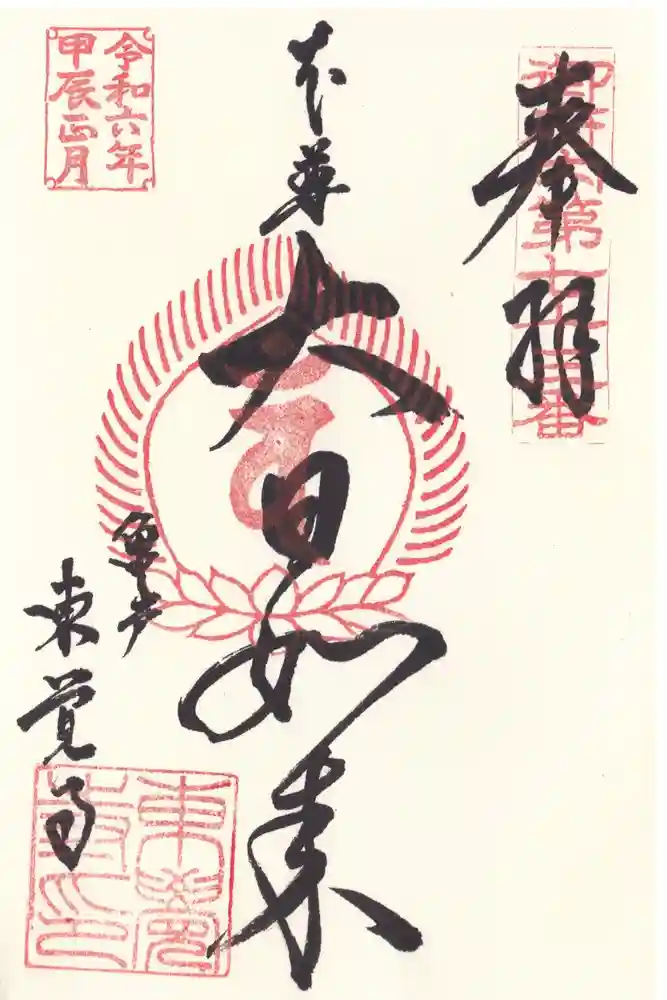 奉拝
御府内第七十三番
本尊
大日如来
亀戸
東覚寺
東覚寺印
令和六年
甲辰正月